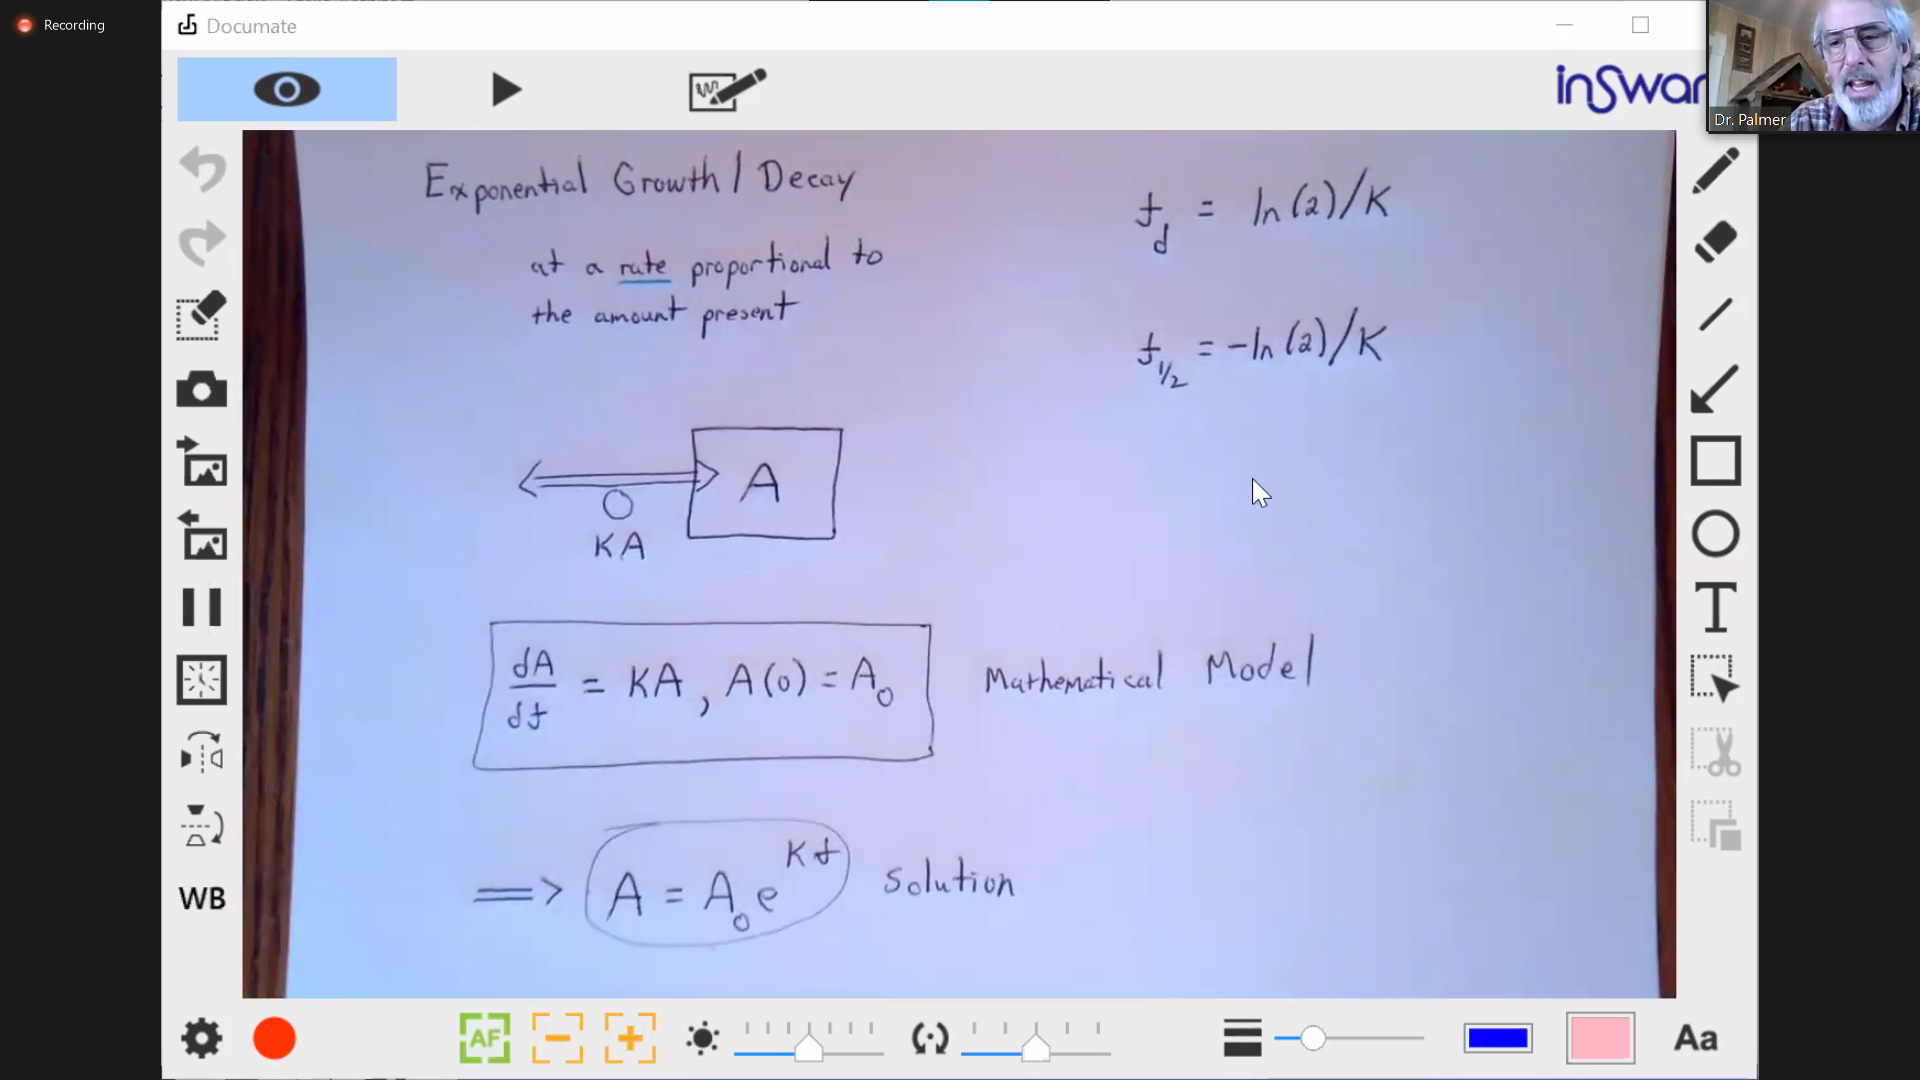 Recording
Documate
inSwan
Dr. Palmer
Exponential Growth / Decay
at a rate proportional to
the amount present
t_d = ln(2)/K
t_1/2 = -ln(2)/K
A
KA
dA/dt = KA, A(0) = A_0
Mathematical Model
=> A = A_0 e^Kt solution
WB
T
AF
Aa